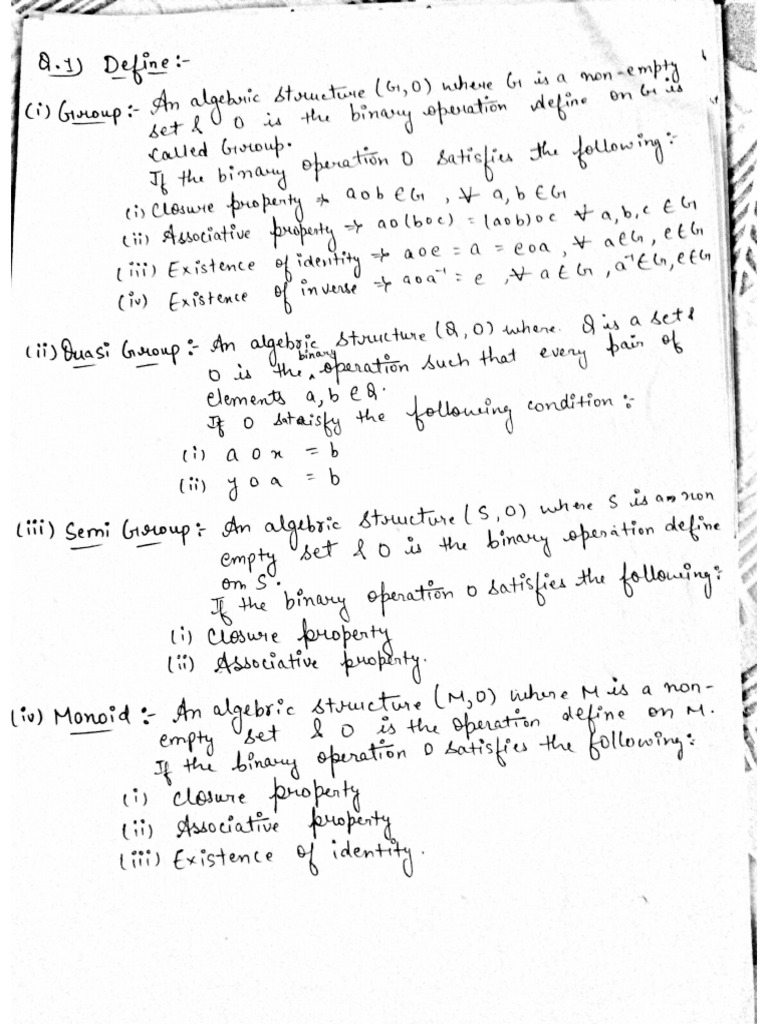 Q.1) Define :-
(i) Group :- An algebric structure (G,O) where G is a non-empty
set & O is the binary operation define on G is
called Group.
If the binary operation O satisfies the following :-
(i) Closure property → aob ∈ G , ∀ a, b ∈ G
(ii) Associative property → ao(boc) = (aob)oc ∀ a,b,c ∈ G
(iii) Existence of identity → aoe = a = eoa , ∀ a∈G, e∈G
(iv) Existence of inverse → aoa⁻¹ = e , ∀ a ∈ G, a⁻¹∈G, e∈G
(ii) Quasi Group :- An algebric structure (Q,O) where Q is a set &
O is the binary operation such that every pair of
elements a, b ∈ Q.
If O sataisfy the following condition :-
(i) a o x = b
(ii) y o a = b
(iii) Semi Group :- An algebric structure (S,O) where S is an non
empty set & O is the binary operation define
on S.
If the binary operation o satisfies the following :-
(i) Closure property
(ii) Associative property.
(iv) Monoid :- An algebric structure (M,O) where M is a non-
empty set & O is the operation define on M.
If the binary operation O satisfies the following :-
(i) Closure property
(ii) Associative property
(iii) Existence of identity.